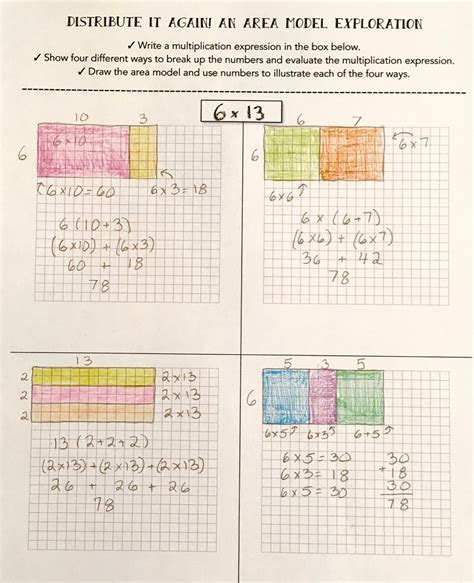 DISTRIBUTE IT AGAIN! AN AREA MODEL EXPLORATION
✓ Write a multiplication expression in the box below.
✓ Show four different ways to break up the numbers and evaluate the multiplication expression.
✓ Draw the area model and use numbers to illustrate each of the four ways.
6 x 13
10 3
6 6x10
6x10=60 6x3=18
6(10+3)
(6x10) + (6x3)
60 + 18
78
6 7
6 6x7
6x6
6 x (6+7)
(6x6) + (6x7)
36 + 42
78
13
2 2x13
2 2x13
2 2x13
13 (2+2+2)
(2x13)+(2x13)+(2x13)
26 + 26 + 26
78
5 3 5
6
6x5 6x3 6+5
6x5=30 30
6x3=18 +18
6x5=30 30
78